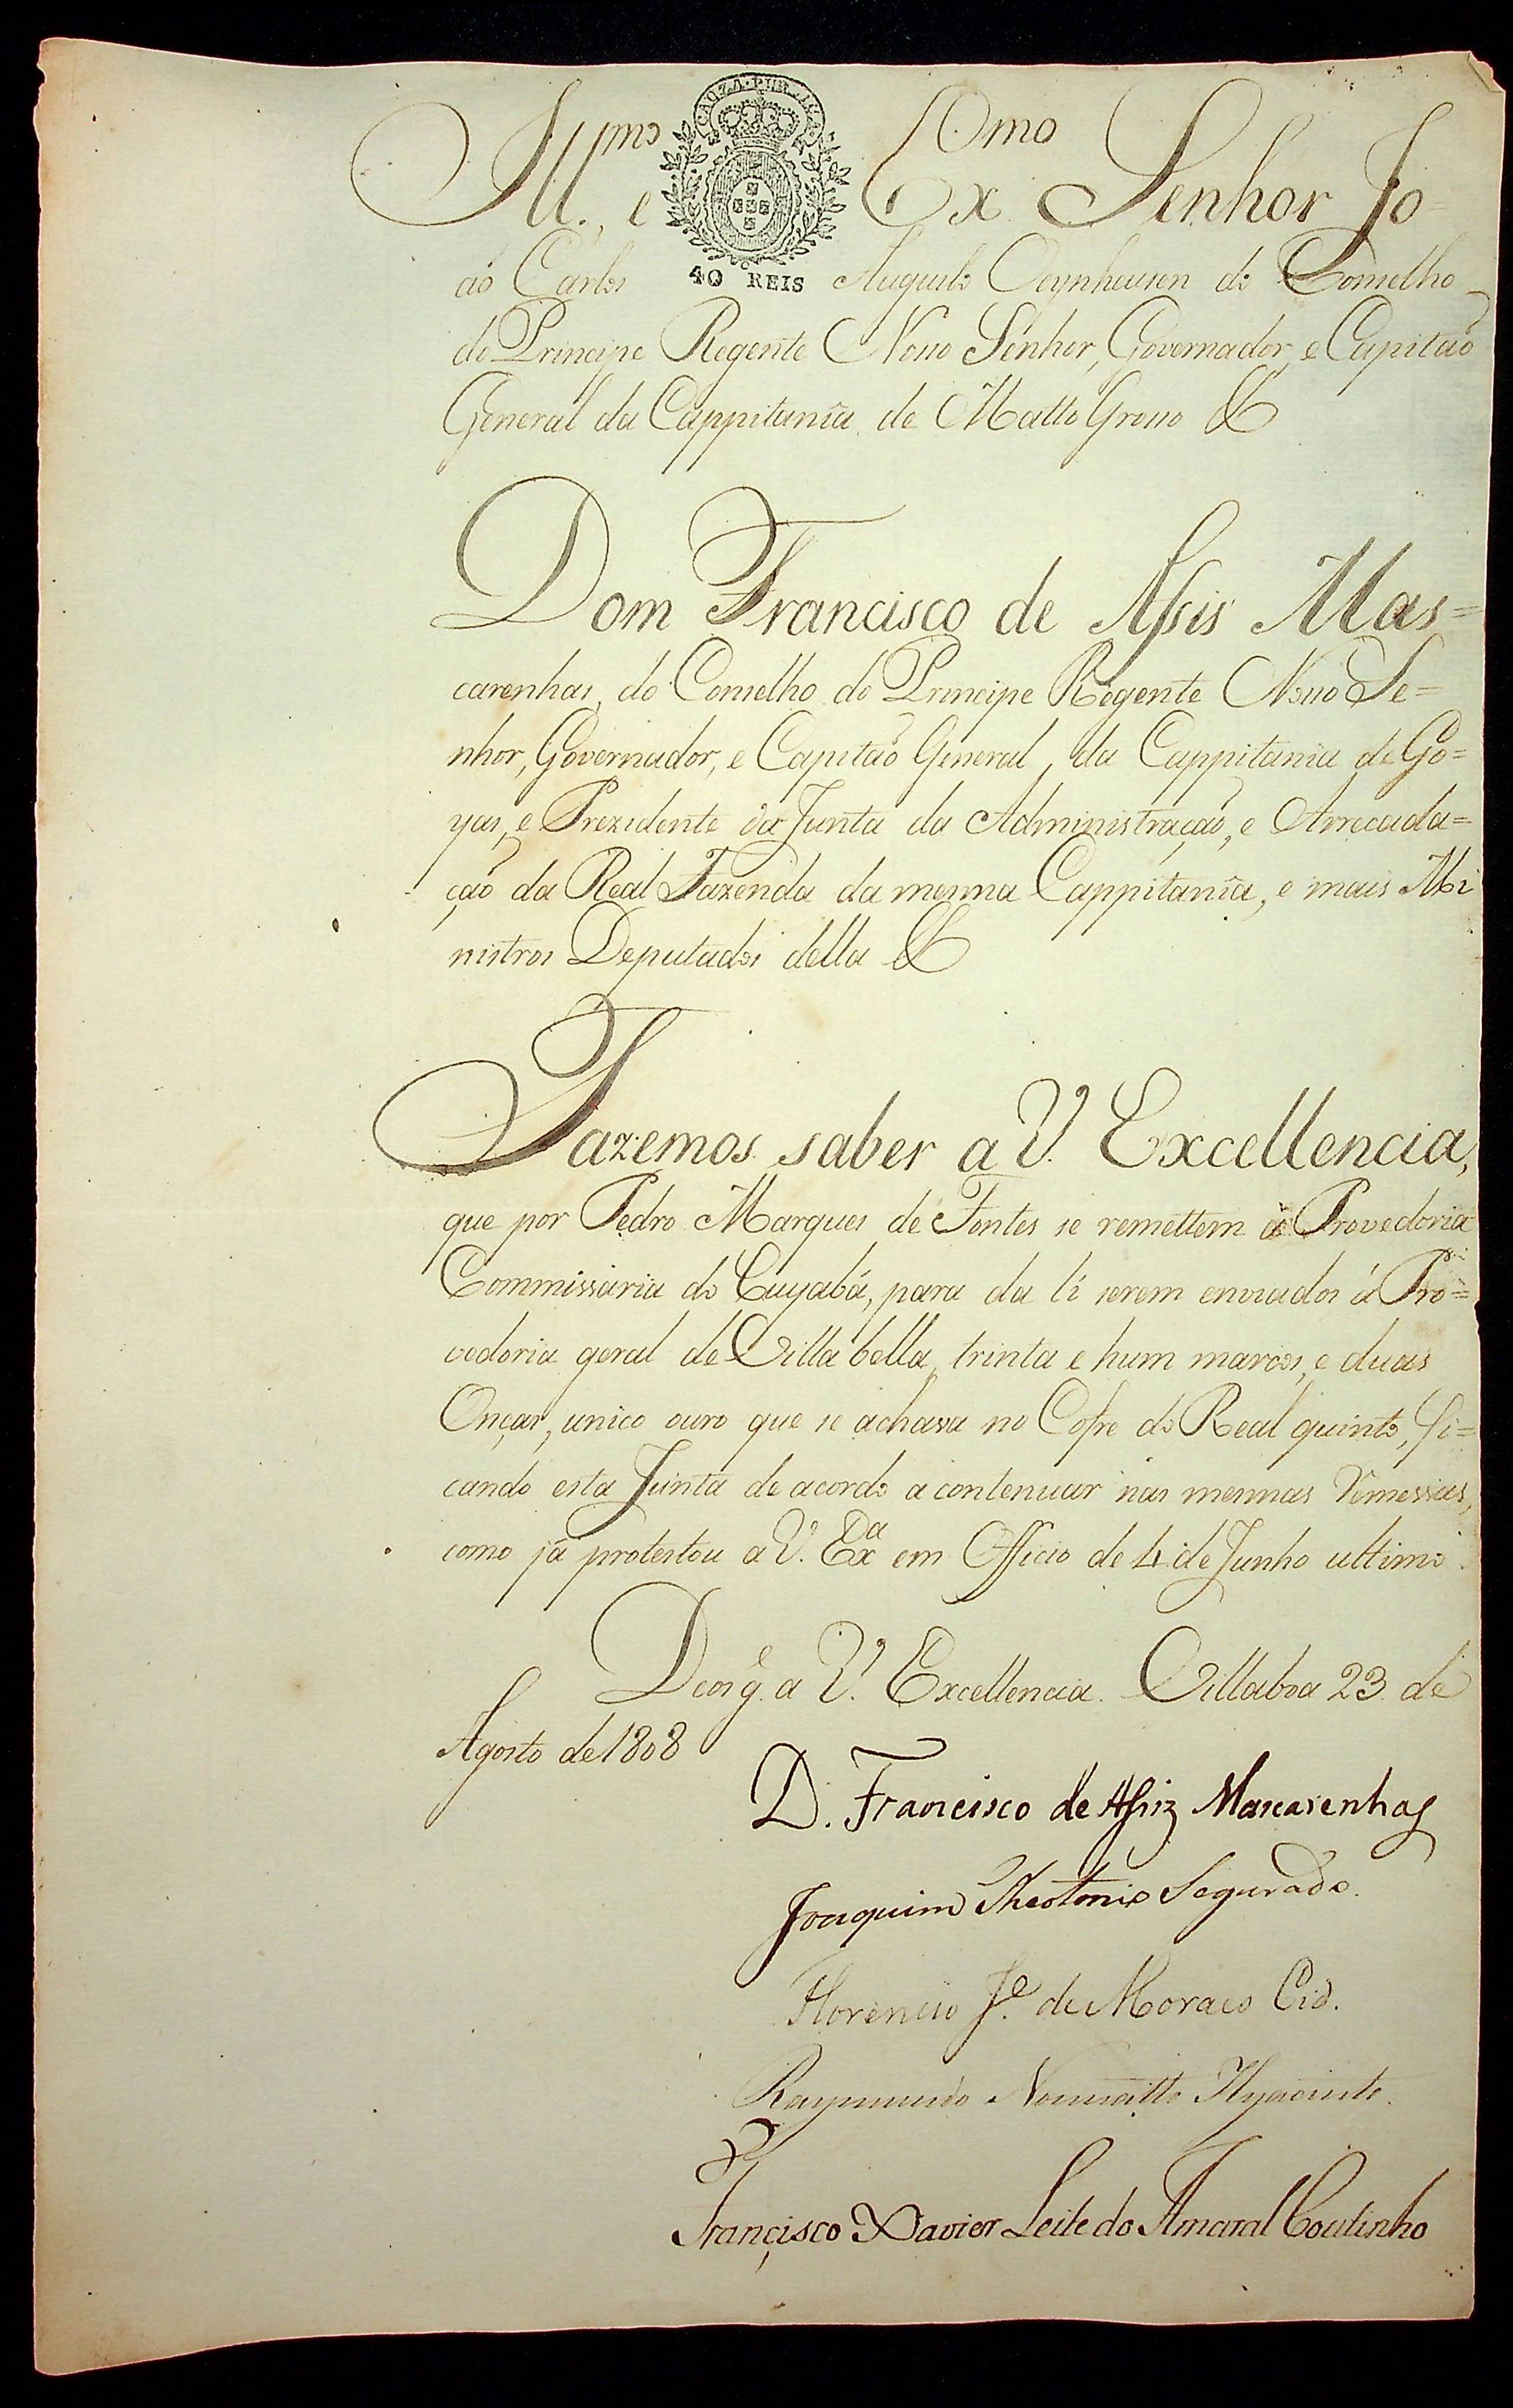 CAUZA PUBLICA
Ill.mo e Ex.mo Senhor Jo=
aõ Carlos Augusto Oeynhausen do Conselho
do Principe Regente Nosso Senhor, Governador, e Capitaõ
General da Cappitanîa de Matto Grosso &
40 REIS
Dom Francisco de Assis Mas=
carenhas, do Conselho do Principe Regente Nosso Se=
nhor, Governador, e Capitaõ General da Cappitania de Go=
yas, e Prezidente da Junta da Administraçaõ, e Arrecada=
çaõ da Real Fazenda da mesma Cappitanîa, e mais Mi
nistros Deputados della &
Fazemos saber a V. Excellencia,
que por Pedro Marques de Fontes se remettem á Provedoria
Commissaria do Cuyabá, para da li serem enviados á Pro=
vedoria geral de Villa bella, trinta e hum marcos, e duas
Onças, unico ouro que se achava no Cofre do Real quinto, fi=
cando esta Junta de acordo a contenuar nas mesmas Remessas,
como já protestou a V. Ex.a em Officio de 4 de Junho ultimo.
Deos g.e a V. Excellencia. Villaboa 23 de
Agosto de 1808
D. Francisco de Assiz Mascarenhas
Joaquim Theotonio Segurado.
Florencio J.e de Moraes Cid.
Raymundo Nonnatto Hyacinto.
Françisco Xavier Leite do Amaral Coutinho